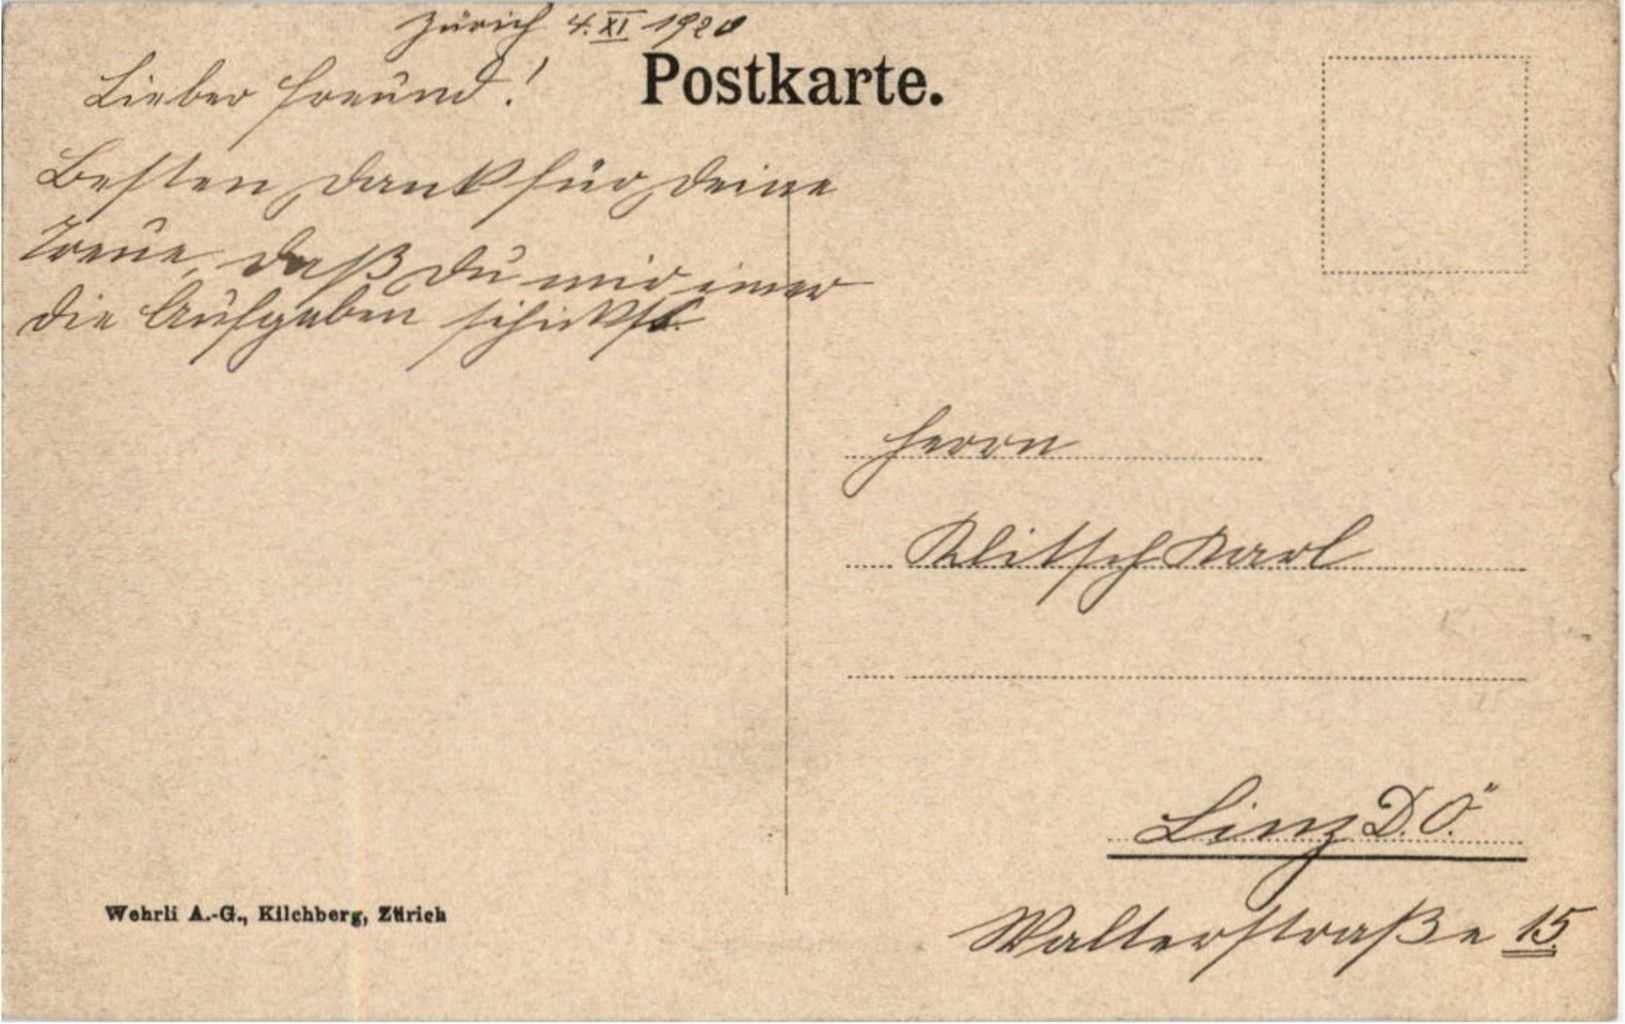 Zürich 4. XI 1920
Postkarte.
Lieber Freund!
Besten Dank für Deine
Treue, daß Du mir imer
die Aufgaben schickst.
Herrn
Klitsch Karl
Linz D. Ö.
Walterstraße 15.
Wehrli A.-G., Kilchberg, Zürich